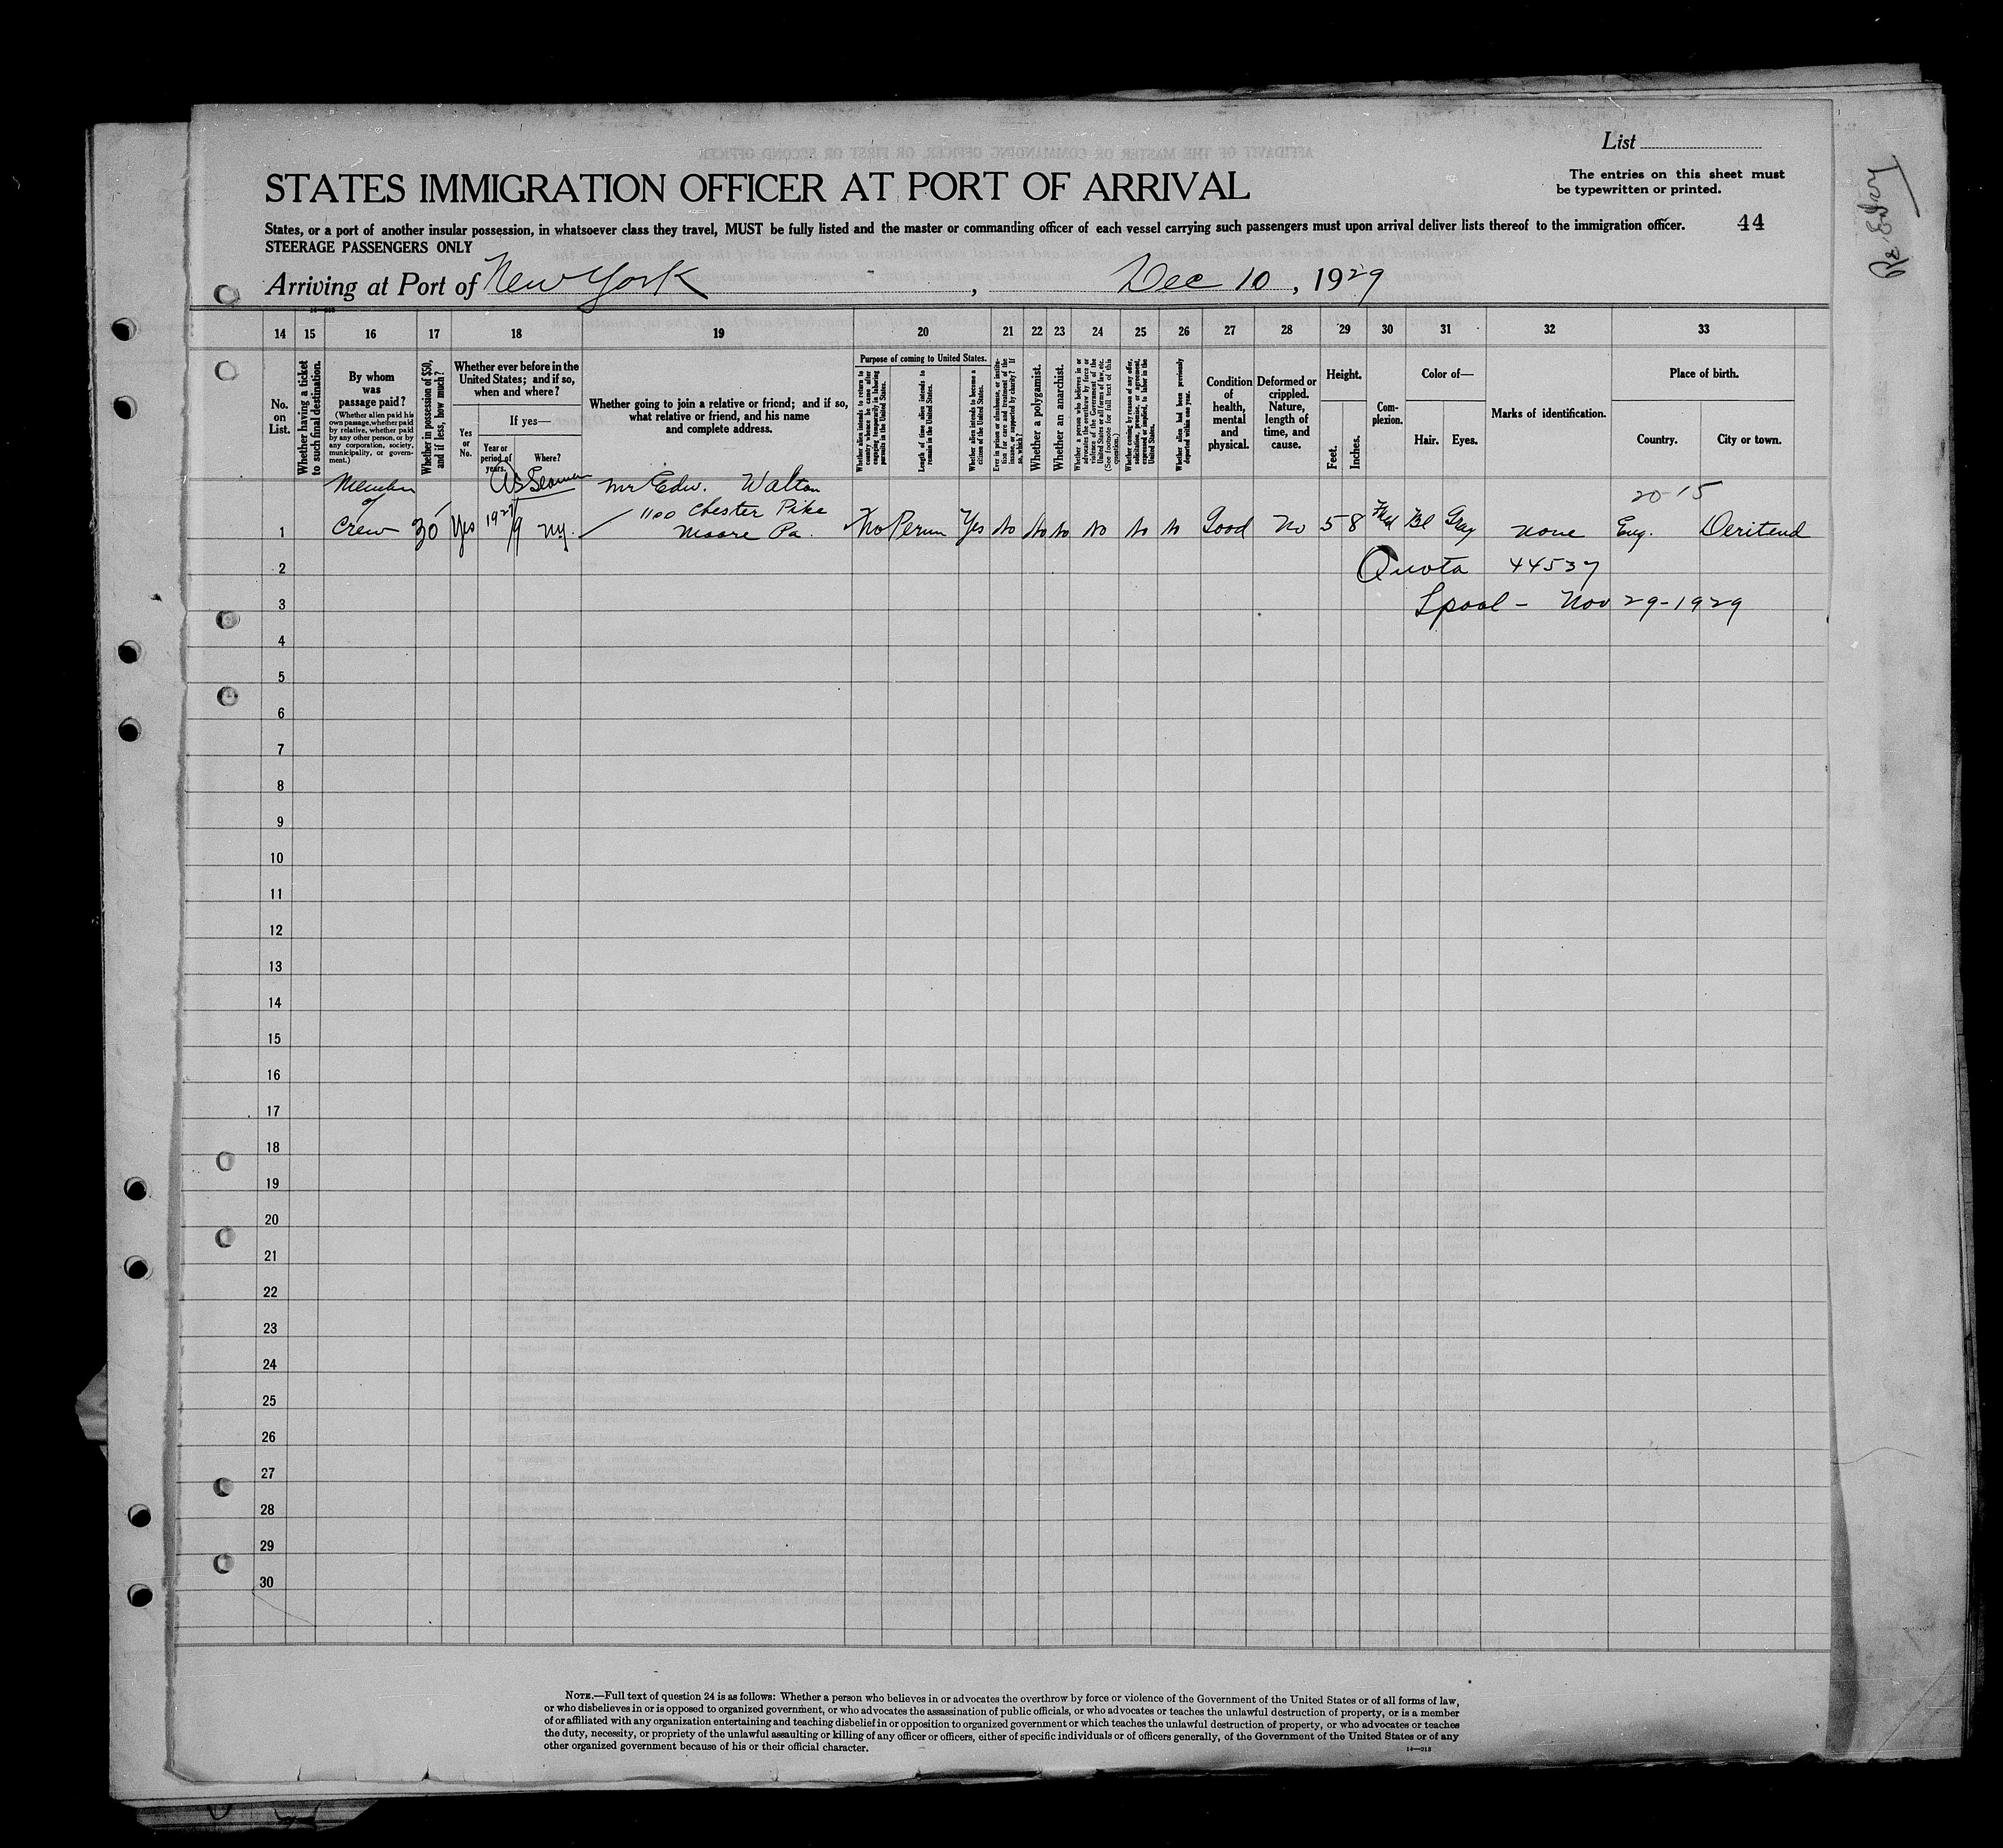 List
The entries on this sheet must
be typewritten or printed.
STATES IMMIGRATION OFFICER AT PORT OF ARRIVAL
44
States, or a port of another insular possession, in whatsoever class they travel, MUST be fully listed and the master or commanding officer of each vessel carrying such passengers must upon arrival deliver lists thereof to the immigration officer.
STEERAGE PASSENGERS ONLY
Arriving at Port of New York, Dec 10, 1929
14 15 16 17 18 19 20 21 22 23 24 25 26 27 28 29 30 31 32 33
No. on List.
Whether having a ticket to such final destination.
By whom was passage paid?
(Whether alien paid his own passage, whether paid by relative, whether paid by any other person, or by any corporation, society, municipality, or government.)
Whether in possession of $50, and if less, how much?
Whether ever before in the United States; and if so, when and where?
Yes or No.
If yes—
Year or period of years.
Where?
Whether going to join a relative or friend; and if so, what relative or friend, and his name and complete address.
Purpose of coming to United States.
Whether alien intends to return to country whence he came after engaging temporarily in laboring pursuits in the United States.
Length of time alien intends to remain in the United States.
Whether alien intends to become a citizen of the United States.
Ever in prison or almshouse, or institution for care and treatment of the insane, or supported by charity? If so, which?
Whether a polygamist.
Whether an anarchist.
Whether a person who believes in or advocates the overthrow by force or violence of the Government of the United States or all forms of law, etc. (See footnote for full text of this question.)
Whether coming by reason of any offer, solicitation, promise, or agreement, expressed or implied, to labor in the United States.
Whether alien had been previously deported within one year.
Condition of health, mental and physical.
Deformed or crippled. Nature, length of time, and cause.
Height.
Feet.
Inches.
Complexion.
Color of—
Hair.
Eyes.
Marks of identification.
Place of birth.
Country.
City or town.
Member As Seaman Mr Edw. Walton 20-15
of 1100 Chester Pike
1 Crew 30 Yes 1927/9 NY. Moore Pa. No Perm Yes No No No No No No Good No 5 8 Bl Gray none Eng. Deritend
2 Quota 44537
3 Lpool - Nov 29-1929
4
5
6
7
8
9
10
11
12
13
14
15
16
17
18
19
20
21
22
23
24
25
26
27
28
29
30
NOTE.—Full text of question 24 is as follows: Whether a person who believes in or advocates the overthrow by force or violence of the Government of the United States or of all forms of law,
or who disbelieves in or is opposed to organized government, or who advocates the assassination of public officials, or who advocates or teaches the unlawful destruction of property, or is a member
of or affiliated with any organization entertaining and teaching disbelief in or opposition to organized government or which teaches the unlawful destruction of property, or who advocates or teaches
the duty, necessity, or propriety of the unlawful assaulting or killing of any officer or officers, either of specific individuals or of officers generally, of the Government of the United States or of any
other organized government because of his or their official character.
14—213